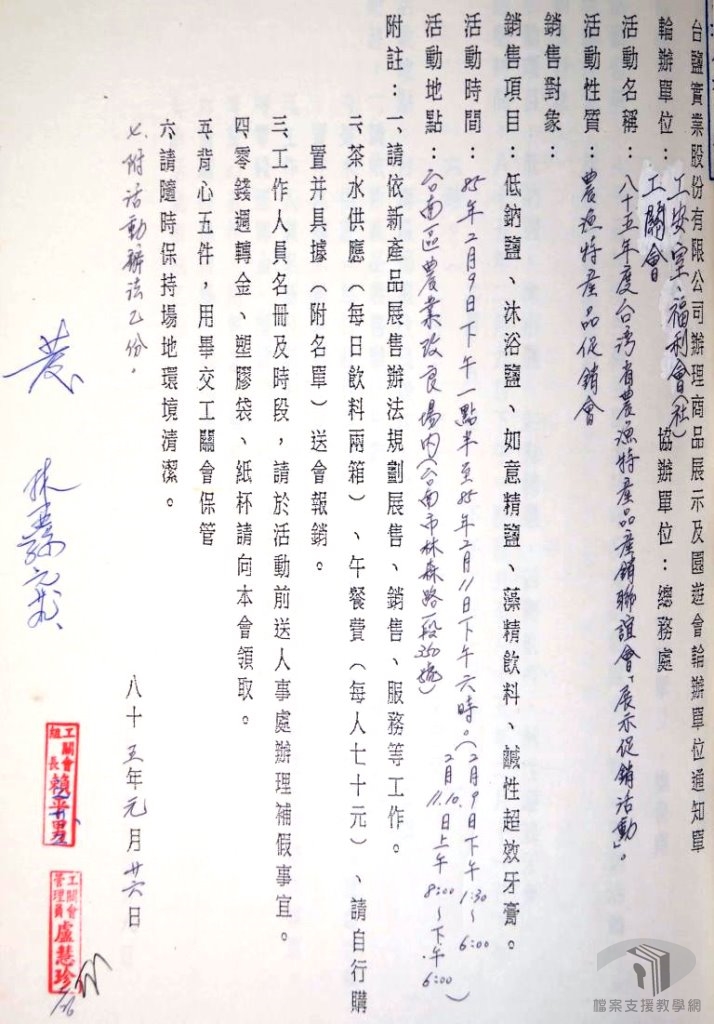 台鹽實業股份有限公司辦理商品展示及園遊會輪辦單位通知單
輪辦單位：工安室、福利會(社) 協辦單位：總務處
工關會
活動名稱：八十五年度台湾省農漁特產品產銷聯誼會「展示促銷活動」。
活動性質：農漁特產品促銷會
銷售對象：
銷售項目：低鈉鹽、沐浴鹽、如意精鹽、藻精飲料、鹹性超效牙膏。
活動時間：85年2月9日下午一點半至85年2月11日下午六時。(2月9日下午1:30～6:00
2月10.11.日上午8:00～下午6:00)
活動地點：台南區農業改良場內(台南市林森路一段350號)
附註：一、請依新產品展售辦法規劃展售、銷售、服務等工作。
二、茶水供應（每日飲料兩箱）、午餐費（每人七十元）、請自行購
置并具據（附名單）送會報銷。
三、工作人員名冊及時段，請於活動前送人事處辦理補假事宜。
四、零錢週轉金、塑膠袋、紙杯請向本會領取。
五、背心五件，用畢交工關會保管
六、請隨時保持場地環境清潔。
七、附活動辦法乙份。
八十五年元月廿六日
工關會
組長
工關會
管理員盧慧珍
檔案支援教學網